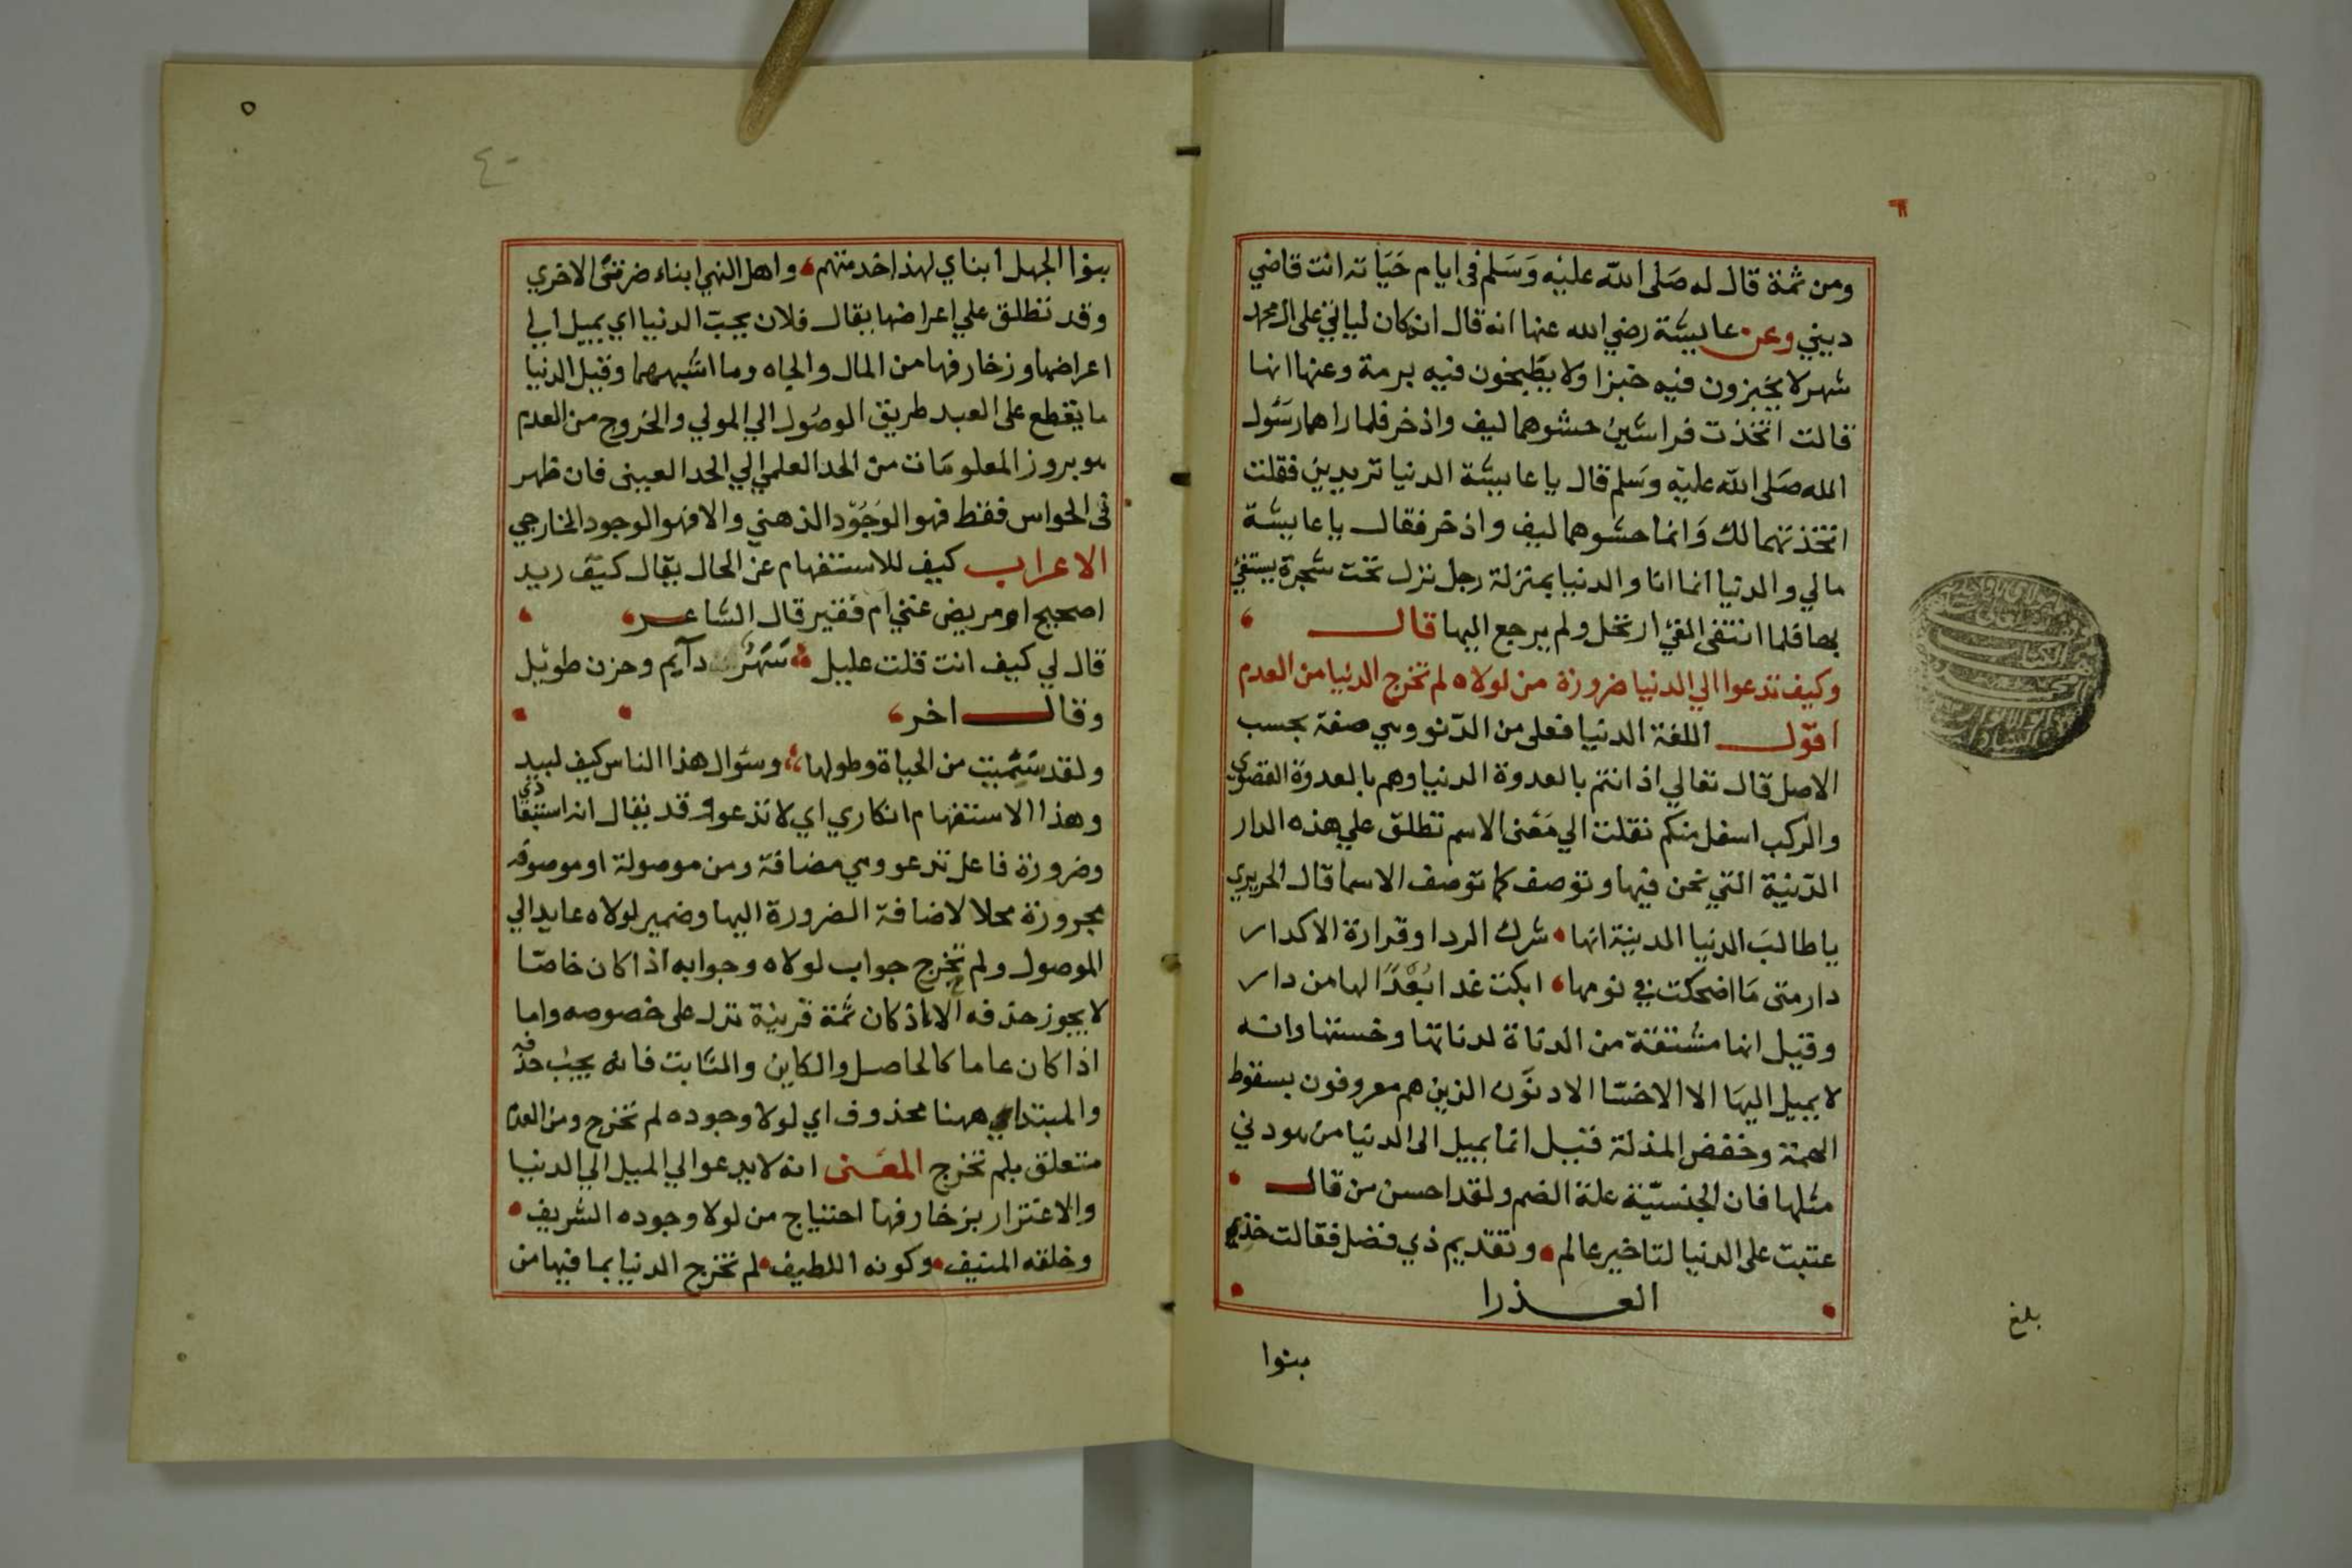 ومن ثمة قال له صَلى الله عليْه وَسَلم فى ايام حَيَاته انت قاضي
ديني وعن عايشة رضي الله عنها انه قال ان كان لياتي على ال محمد
شهر لا يخبزون فيه خبزا ولا يطبخون فيه برمة وعنها انها
قالت اتخذت فراشين حشوهما ليف واذخر فلما راهما رسَول
الله صَلى الله عليه وسَلم قال يا عايشة الدنيا تريدين فقلت
اتخذتهما لك وَانما حشوهما ليف واذخر فقال يا عايشة
مالي والدنيا انما انا والدنيا بمنزلة رجل نزل تحت شجرة يستفئ
بها فلما انتفى الفئ ارتحل ولم يرجع اليها قال
وكيف تدعوا الي الدنيا ضرورة من لولاه لم تخرج الدنيا من العدم
اقول اللغة الدنيا فعلى من الدنو وهي صفة بحسب
الاصل قال تعالي اذ انتم بالعدوة الدنيا وهم بالعدوة القصوى
والركب اسفل منكم نقلت الي مَعْنى الاسم تطلق علي هذه الدار
الدّنية التي نحن فيها وتوصف كما توصف الاسما قال الحريري
يا طالبَ الدنيا الدنية انها شرك الردا وقرارة الاكدار
دار متى مَا اضحكت في يومها ابكت غدا بُعْدًا لها من دار
وقيل انها مشتقة من الدناة لدناتها وخستها وانه
لا يميل اليهَا الا الاخسّا الادنَون الذين هم معروفون بسقوط
الهمة وخفض المذلة فقيل انما يميل الى الدنيا من هو دني
مثلها فان الجنسيّة علة الضم ولقد احسن من قال
عتبت على الدنيا لتاخير عالم وتقديم ذي فضل فقالت خذي
العذرا
بنوا
بلغ
٥
بنوا الجهل ابناي لهذا خدمتهم واهل النهي ابناء ضرتي الاخري
وقد تطلق علي اعراضها يقال فلان يحبّ الدنيا اي يميل الي
اعراضها وزخارفها من المال والجاه وما اشبههما وقيل الدنيا
ما يقطع على العبد طريق الوصُول الي المولي والخروج من العدم
هو بروز المعلومَات من الحد العلمي الي الحد العيني فان ظهر
فى الحواس فقط فهو الوَجُوْد الذهني والا فهو الوجود الخارجي
الاعراب كيف للاستفهام عن الحال يقال كيف زيد
اصحيح او مريض غني ام فقير قال الشاعر
قال لي كيف انت قلت عليل سَهَرٌ دآيم وحزن طويل
وقال اخر
ولقد سَئمت من الحياة وطولها وسئوال هذا الناس كيف لبيد
وهذا الاستفهام انكاري اي لا تدعوا وقد يقال انه استبقا
وضرورة فاعل تدعو وهي مضافة ومن موصولة او موصوفه
مجرورة محلا لاضافة الضرورة اليها وضمير لولاه عايد الي
الموصول ولم تخرج جواب لولاه وجوابه اذا كان خاصّا
لا يجوز حذفه الا اذ كان ثمة قرينة تدل على خصوصه واما
اذا كان عاما كالحاصل والكاين والثابت فانه يجب حذفه
والمبتداي ههنا محذوف اي لولا وجوده لم تخرج ومن العدم
متعلق بلم تخرج المعْنى انه لا يدعوا لي الميل الي الدنيا
والاغترار بزخارفها احتياج من لولا وجوده الشريف
وخلقه المنيف وكونه اللطيف لم تخرج الدنيا بما فيها من